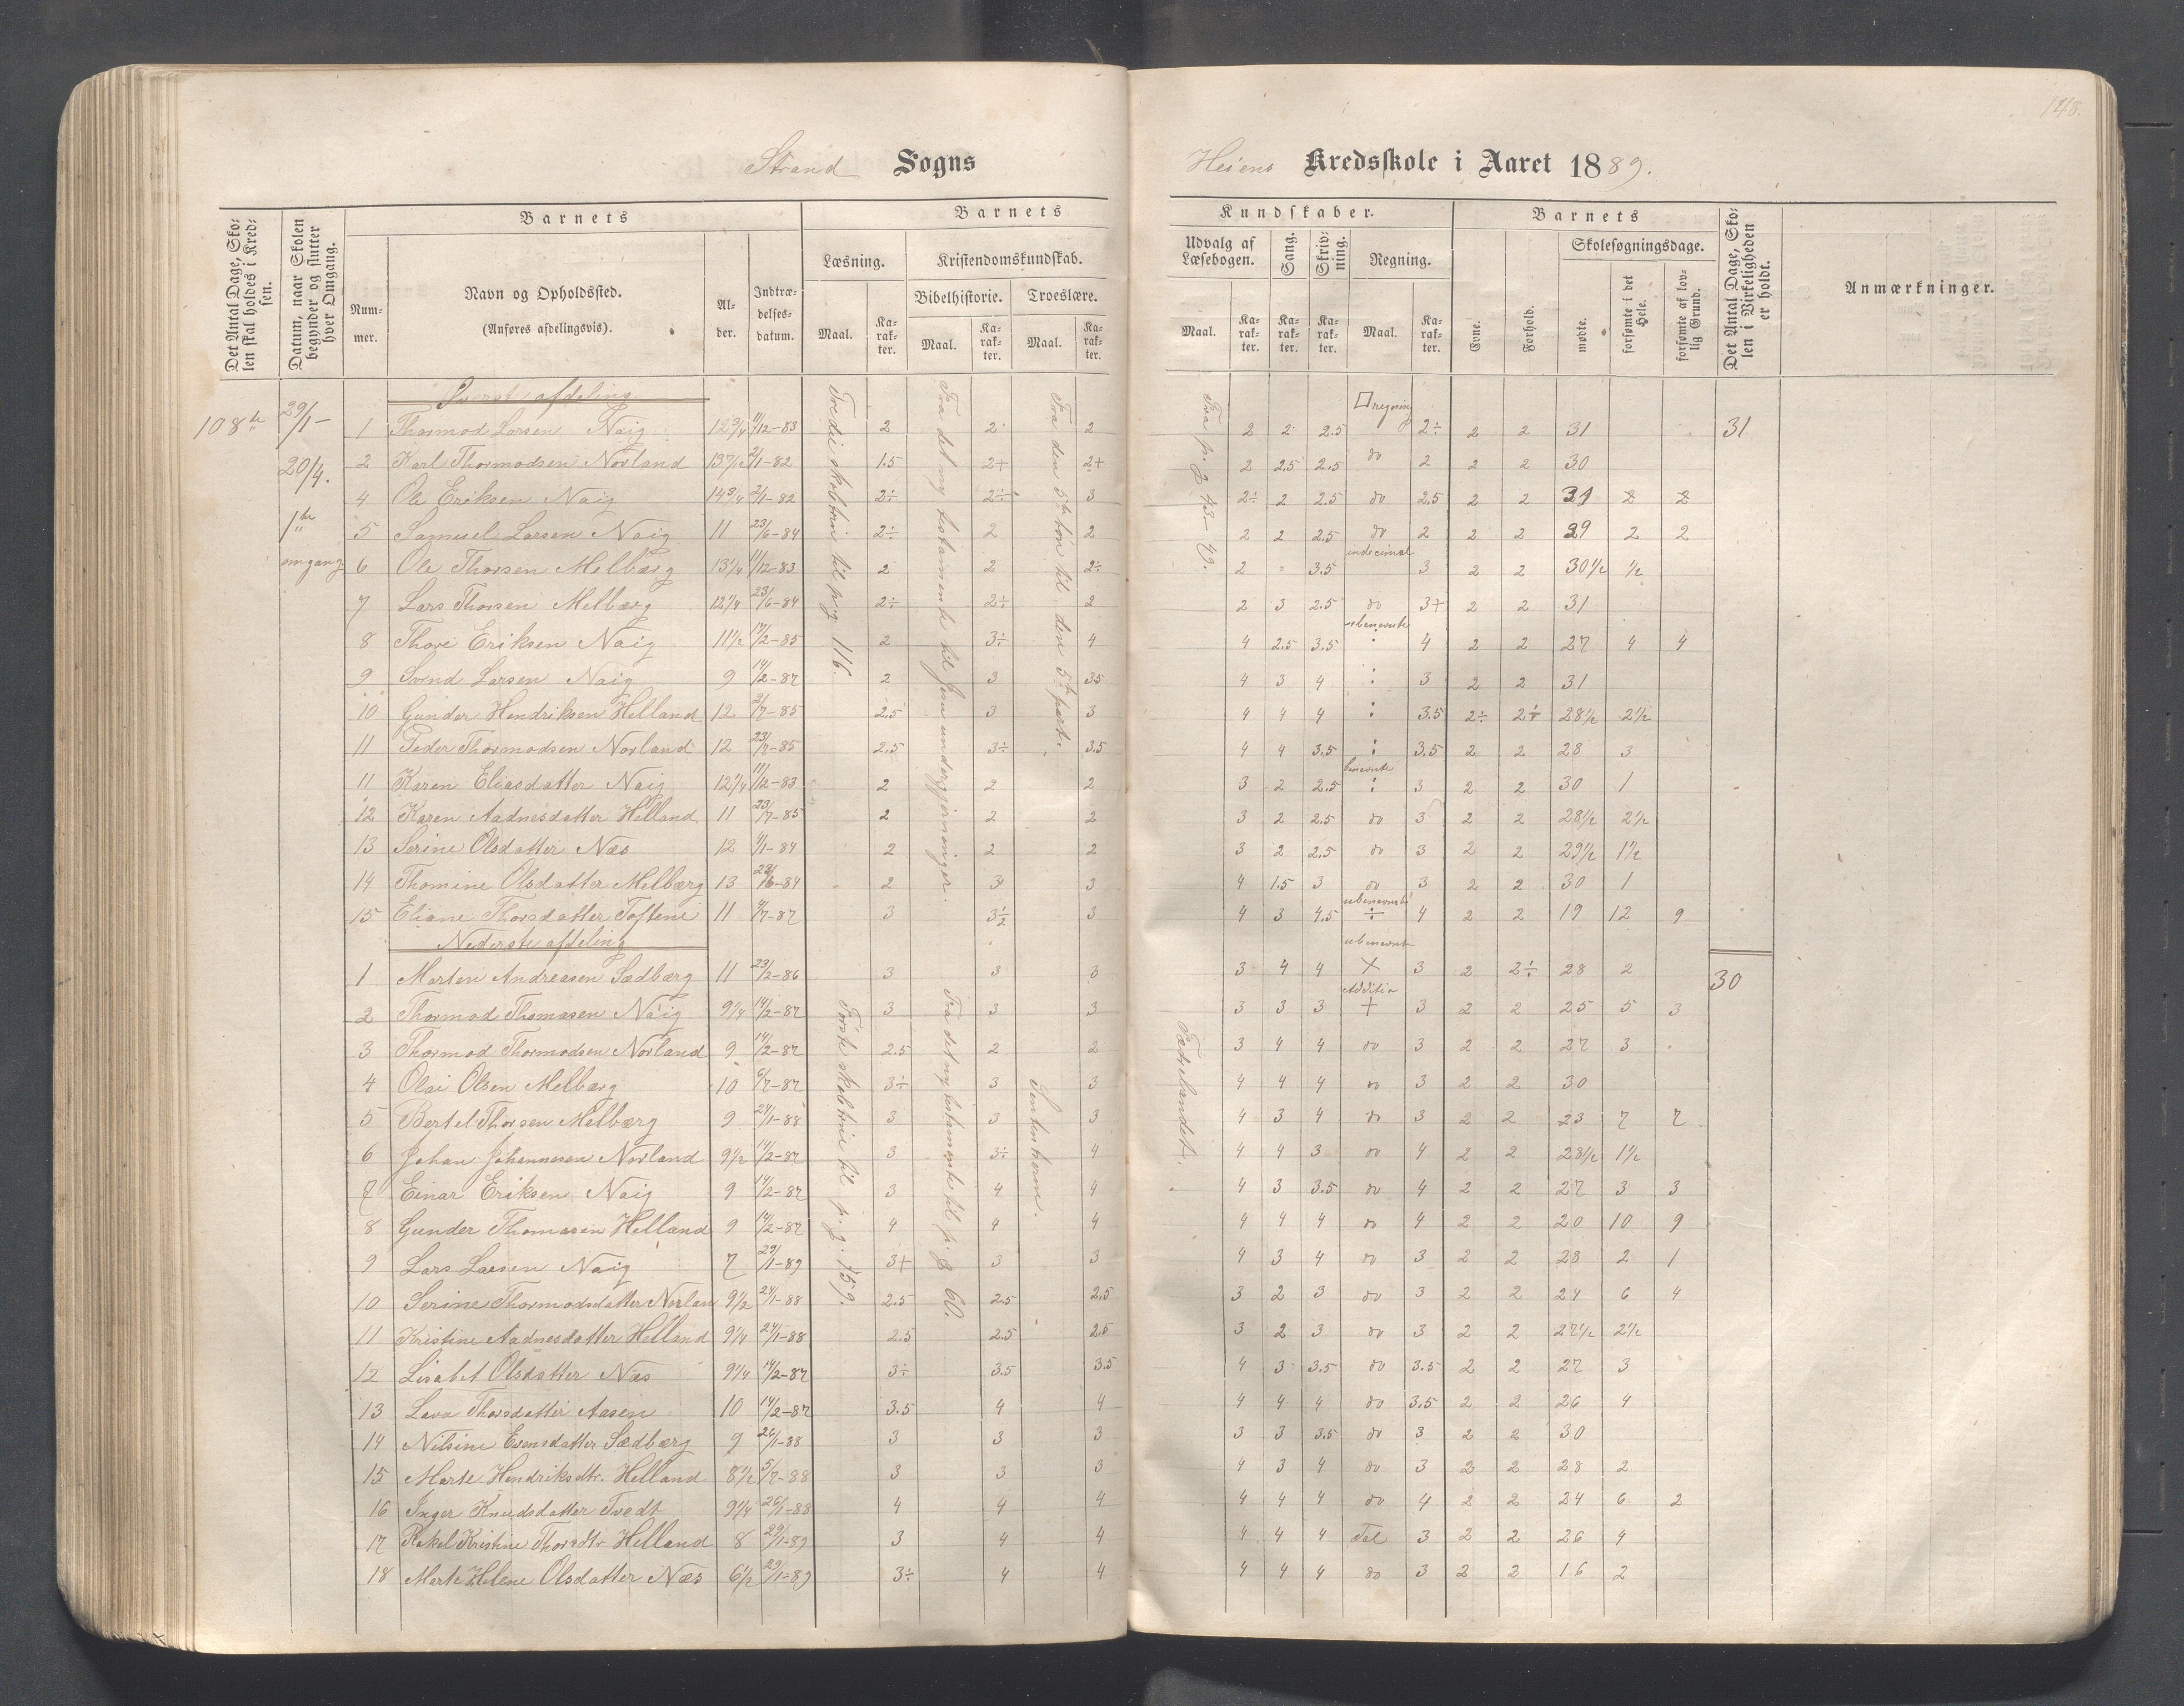 148.
Strand Sogns
Heiens Kredsskole i Aaret 1889.
Det Antal Dage, Skolen skal holdes i Kredsen.
Datum, naar Skolen begynder og slutter hver Omgang.
Barnets
Nummer.
Navn og Opholdssted.
(Anføres afdelingsvis).
Alder.
Indtrædelsesdatum.
Barnets
Læsning.
Maal.
Karakter.
Kristendomskundskab.
Bibelhistorie.
Maal.
Karakter.
Troeslære.
Maal.
Karakter.
Kundskaber.
Udvalg af Læsebogen.
Maal.
Karakter.
Sang.
Karakter.
Skrivning.
Karakter.
Regning.
Maal.
Karakter.
Barnets
Evne.
Forhold.
Skolesøgningsdage.
mødte.
forsømte i det Hele.
forsømte af lovlig Grund.
Det Antal Dage, Skolen i Virkeligheden er holdt.
Anmærkninger.
108 29/1 – 20/4. 1ste omgang
Øverste afdeling
Tredie skoletrin til pag 116.
Fra det ny testamente til Jesu undergjerninger.
Fra den 5te bøn til den 5te part.
Fra p. g 43-49.
1 Thormod Larsen Naig 12 3/4 11/12-83 2 2 2 2 2 2.5 □regning 2÷ 2 2 31 31
2 Karl Thormodsen Norland 13 7/12 2/1-82 1.5 2+ 2+ 2 2.5 2.5 do 2 2 2 30
4 Ole Eriksen Naig 14 3/4 2/1-82 2÷ 2÷ 3 2÷ 2 2.5 do 2.5 2 2 31 2 2
5 Samuel Larsen Naig 11 23/6-84 2÷ 2 2 2 2 2.5 do 2 2 2 29 2 2
6 Ole Thorsen Melbærg 13 1/4 11/12-83 2 2 2÷ 2 - 3.5 indecimal 3 2 2 30 1/2 1/2
7 Lars Thorsen Melbærg 12 1/4 23/6-84 2÷ 2÷ 2 2 3 2.5 do 3+ 2 2 31
8 Thore Eriksen Naig 11 1/2 17/2-85 2 3÷ 4 4 2.5 3.5 ubenevnte : 4 2 2 27 4 4
9 Svend Larsen Naig 9 14/2-87 2 3 3.5 4 3 4 : 3 2 2 31
10 Gunder Hendriksen Helland 12 2/7-85 2.5 3 3 4 4 4 : 3.5 2÷ 2÷ 28 1/2 2 1/2
11 Peder Thormodsen Norland 12 23/7-85 2.5 3÷ 3.5 4 4 3.5 : 3.5 2 2 28 3
11 Karen Eliasdatter Naig 12 1/4 11/12-83 2 2 2 3 2 2.5 benevnte : 3 2 2 30 1
12 Karen Aadnesdatter Helland 11 23/7-85 2 2 2 3 2 2.5 do 3 2 2 28 1/2 2 1/2
13 Serine Olsdatter Næs 12 4/1-84 2 2 2 3 2 2.5 do 3 2 2 29 1/2 1 1/2
14 Thomine Olsdatter Melbærg 13 23/6-84 2 3 3 4 1.5 3 do 3 2 2 30 1
15 Eliane Thorsdatter Toftene 11 4/7-87 3 3 1/2 3 4 3 4.5 ubenevnte ÷ 4 2 2 19 12 9
Nederste afdeling
Første skoletrin til p. g. 159.
Fra det ny testamente til p. g 60.
Sentenserne.
Fædrelandet.
1 Morten Andreasen Sædbærg 11 23/2-86 3 3 3 3 4 4 ubenevnte × 3 2 2÷ 28 2 30
2 Thormod Thomasen Naig 9 1/4 14/2-87 3 3 3 3 3 3 Additio + 3 2 2 25 5 3
3 Thormod Thormodsen Norland 9 14/2-87 2.5 2 2 3 4 4 do 3 2 2 27 3
4 Olai Olsen Melbærg 10 6/7-87 3÷ 3 3 4 4 4 do 3 2 2 30
5 Bertel Thorsen Melbærg 9 24/1-88 3 3 3 4 3 4 do 3 2 2 23 7 7
6 Johan Johannesen Norland 9 1/2 14/2-87 3 3÷ 4 4 4 3 do 4 2 2 28 1/2 1 1/2
7 Einar Eriksen Naig 9 14/2-87 3 4 4 4 3 3.5 do 4 2 2 27 3 3
8 Gunder Thomasen Helland 9 14/2-87 4 4 4 4 4 4 do 4 2 2 20 10 9
9 Lars Larsen Naig 7 29/1-89 3+ 3 3 4 3 4 do 3 2 2 28 2 1
10 Serine Thormodsdatter Norlan 9 1/2 24/1-88 2.5 2.5 2.5 3 2 3 do 3 2 2 24 6 4
11 Kristine Aadnesdatter Helland 9 1/4 24/1-88 2.5 2.5 2.5 3 2 3 do 3 2 2 27 1/2 2 1/2
12 Lisabet Olsdatter Næs 9 1/4 14/2-87 3÷ 3.5 3.5 4 3 3.5 do 3.5 2 2 27 3
13 Lava Thorsdatter Aasen 10 14/2-87 3.5 4 4 4 4 4 do 3.5 2 2 26 4
14 Nilsine Evensdatter Sædbærg 9 26/1-88 3 3 3 3 3 3.5 do 3 2 2 30
15 Marte Hendriksdtr. Helland 8 1/2 5/7-88 3 3 3 4 3 4 do 3 2 2 28 2
16 Inger Knudsdatter Tvedt 9 1/4 26/1-88 4 4 4 4 4 4 do 4 2 2 24 6 2
17 Rakel Kristine Thorsdtr Helland 8 29/1-89 3 4 4 4 4 4 Tal 3 2 2 26 4
18 Marte Helene Olsdatter Næs 6 1/2 29/1-89 3÷ 4 4 4 4 4 do 3 2 2 16 2